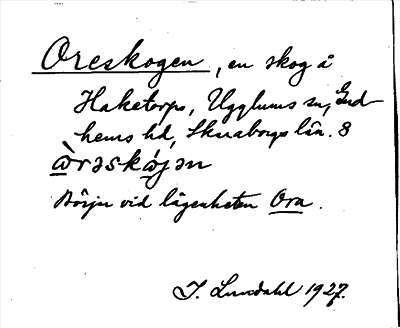 Oreskogen, en skog å
Haketorps, Ugglums sn, Gud-
hems hd, Skaraborgs län. 8
ɷ̀rəskɷ́jən
Börjar vid lägenheten Ora.
I. Lundahl 1927.